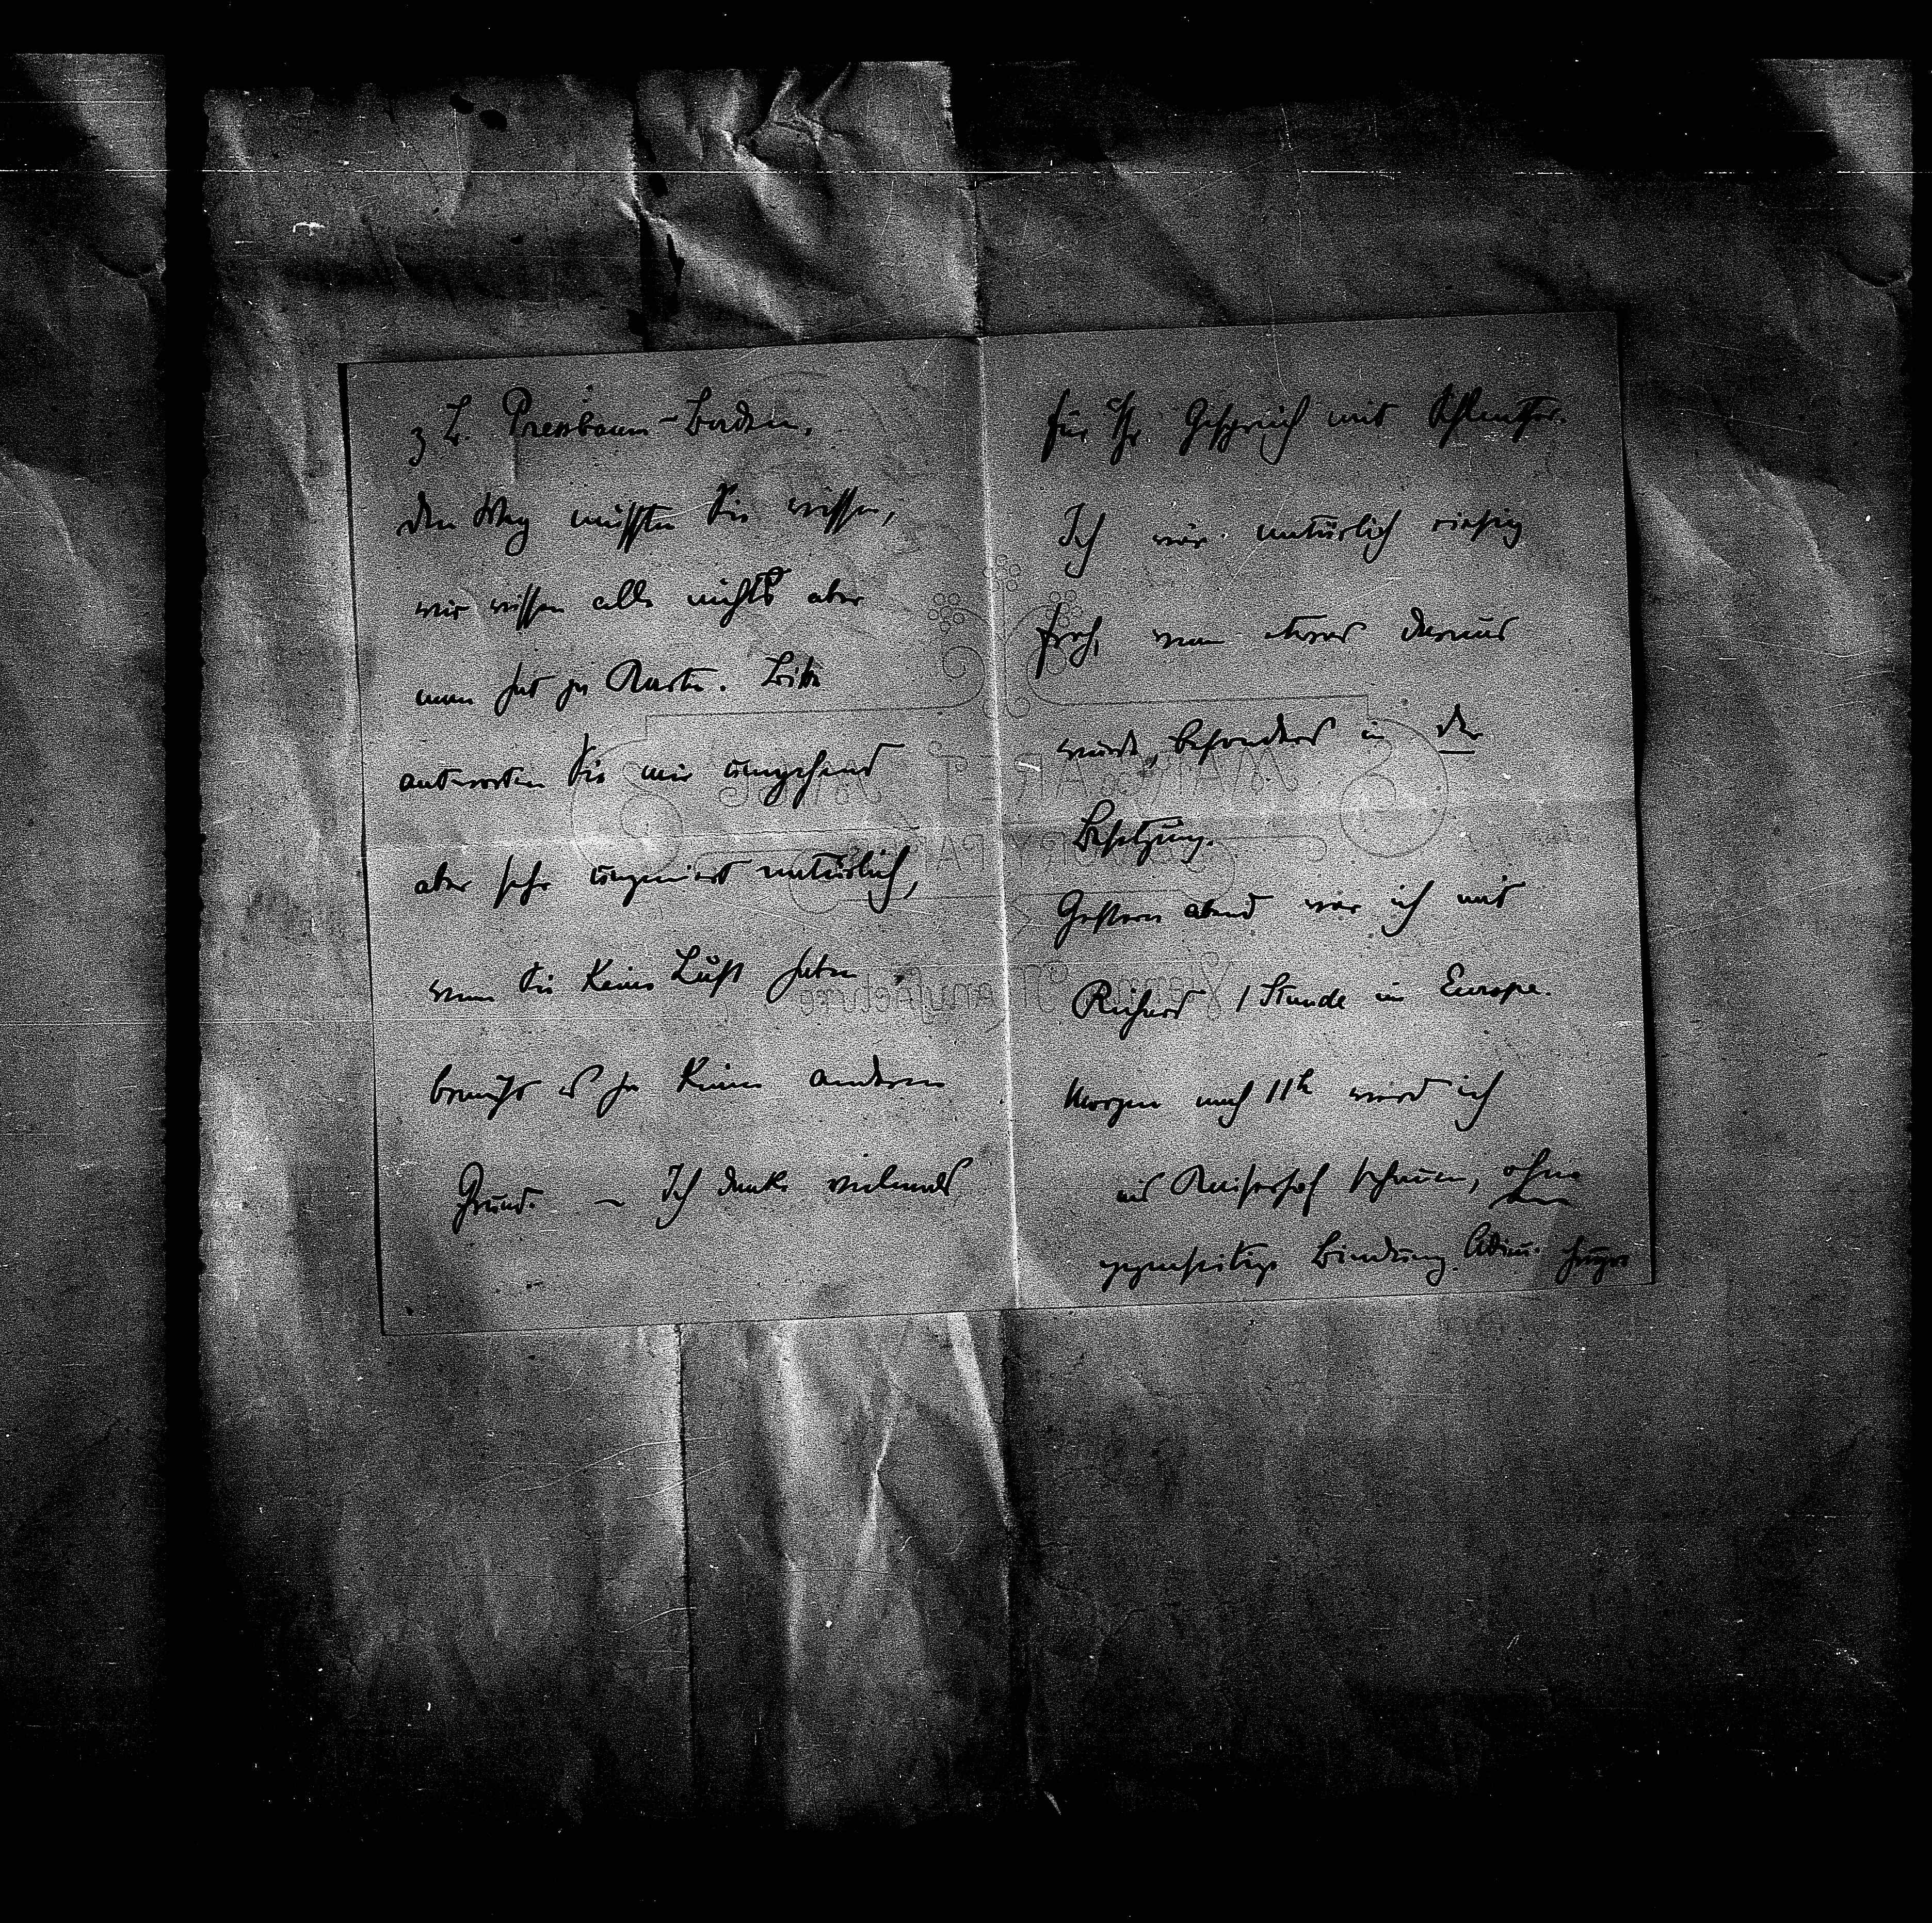 z B. Pressbaum-Baden.
Den Weg müssten Sie wissen,
wir wissen alle nichts aber
man hat ja Karten. Bitte
antworten Sie mir umgehend
aber sehr ungeniert natürlich,
wenn Sie keine Lust haben,
braucht es ja keinen anderen
Grund. – Ich danke vielmals
für Ihr Gespräch mit Schlenther.
Ich wär natürlich riesig
froh, wenn etwas daraus
würde, besonders in der
Besetzung.
Gestern abend war ich mit
Richard 1 Stunde in Europe.
Morgen nach 11h werd ich
ins Kaiserhof schauen, ohne
gegenseitige Bindung. Adieu. Hugo